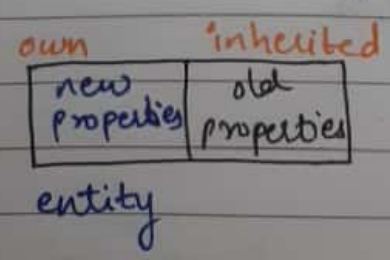 own inherited
new old
properties properties
entity